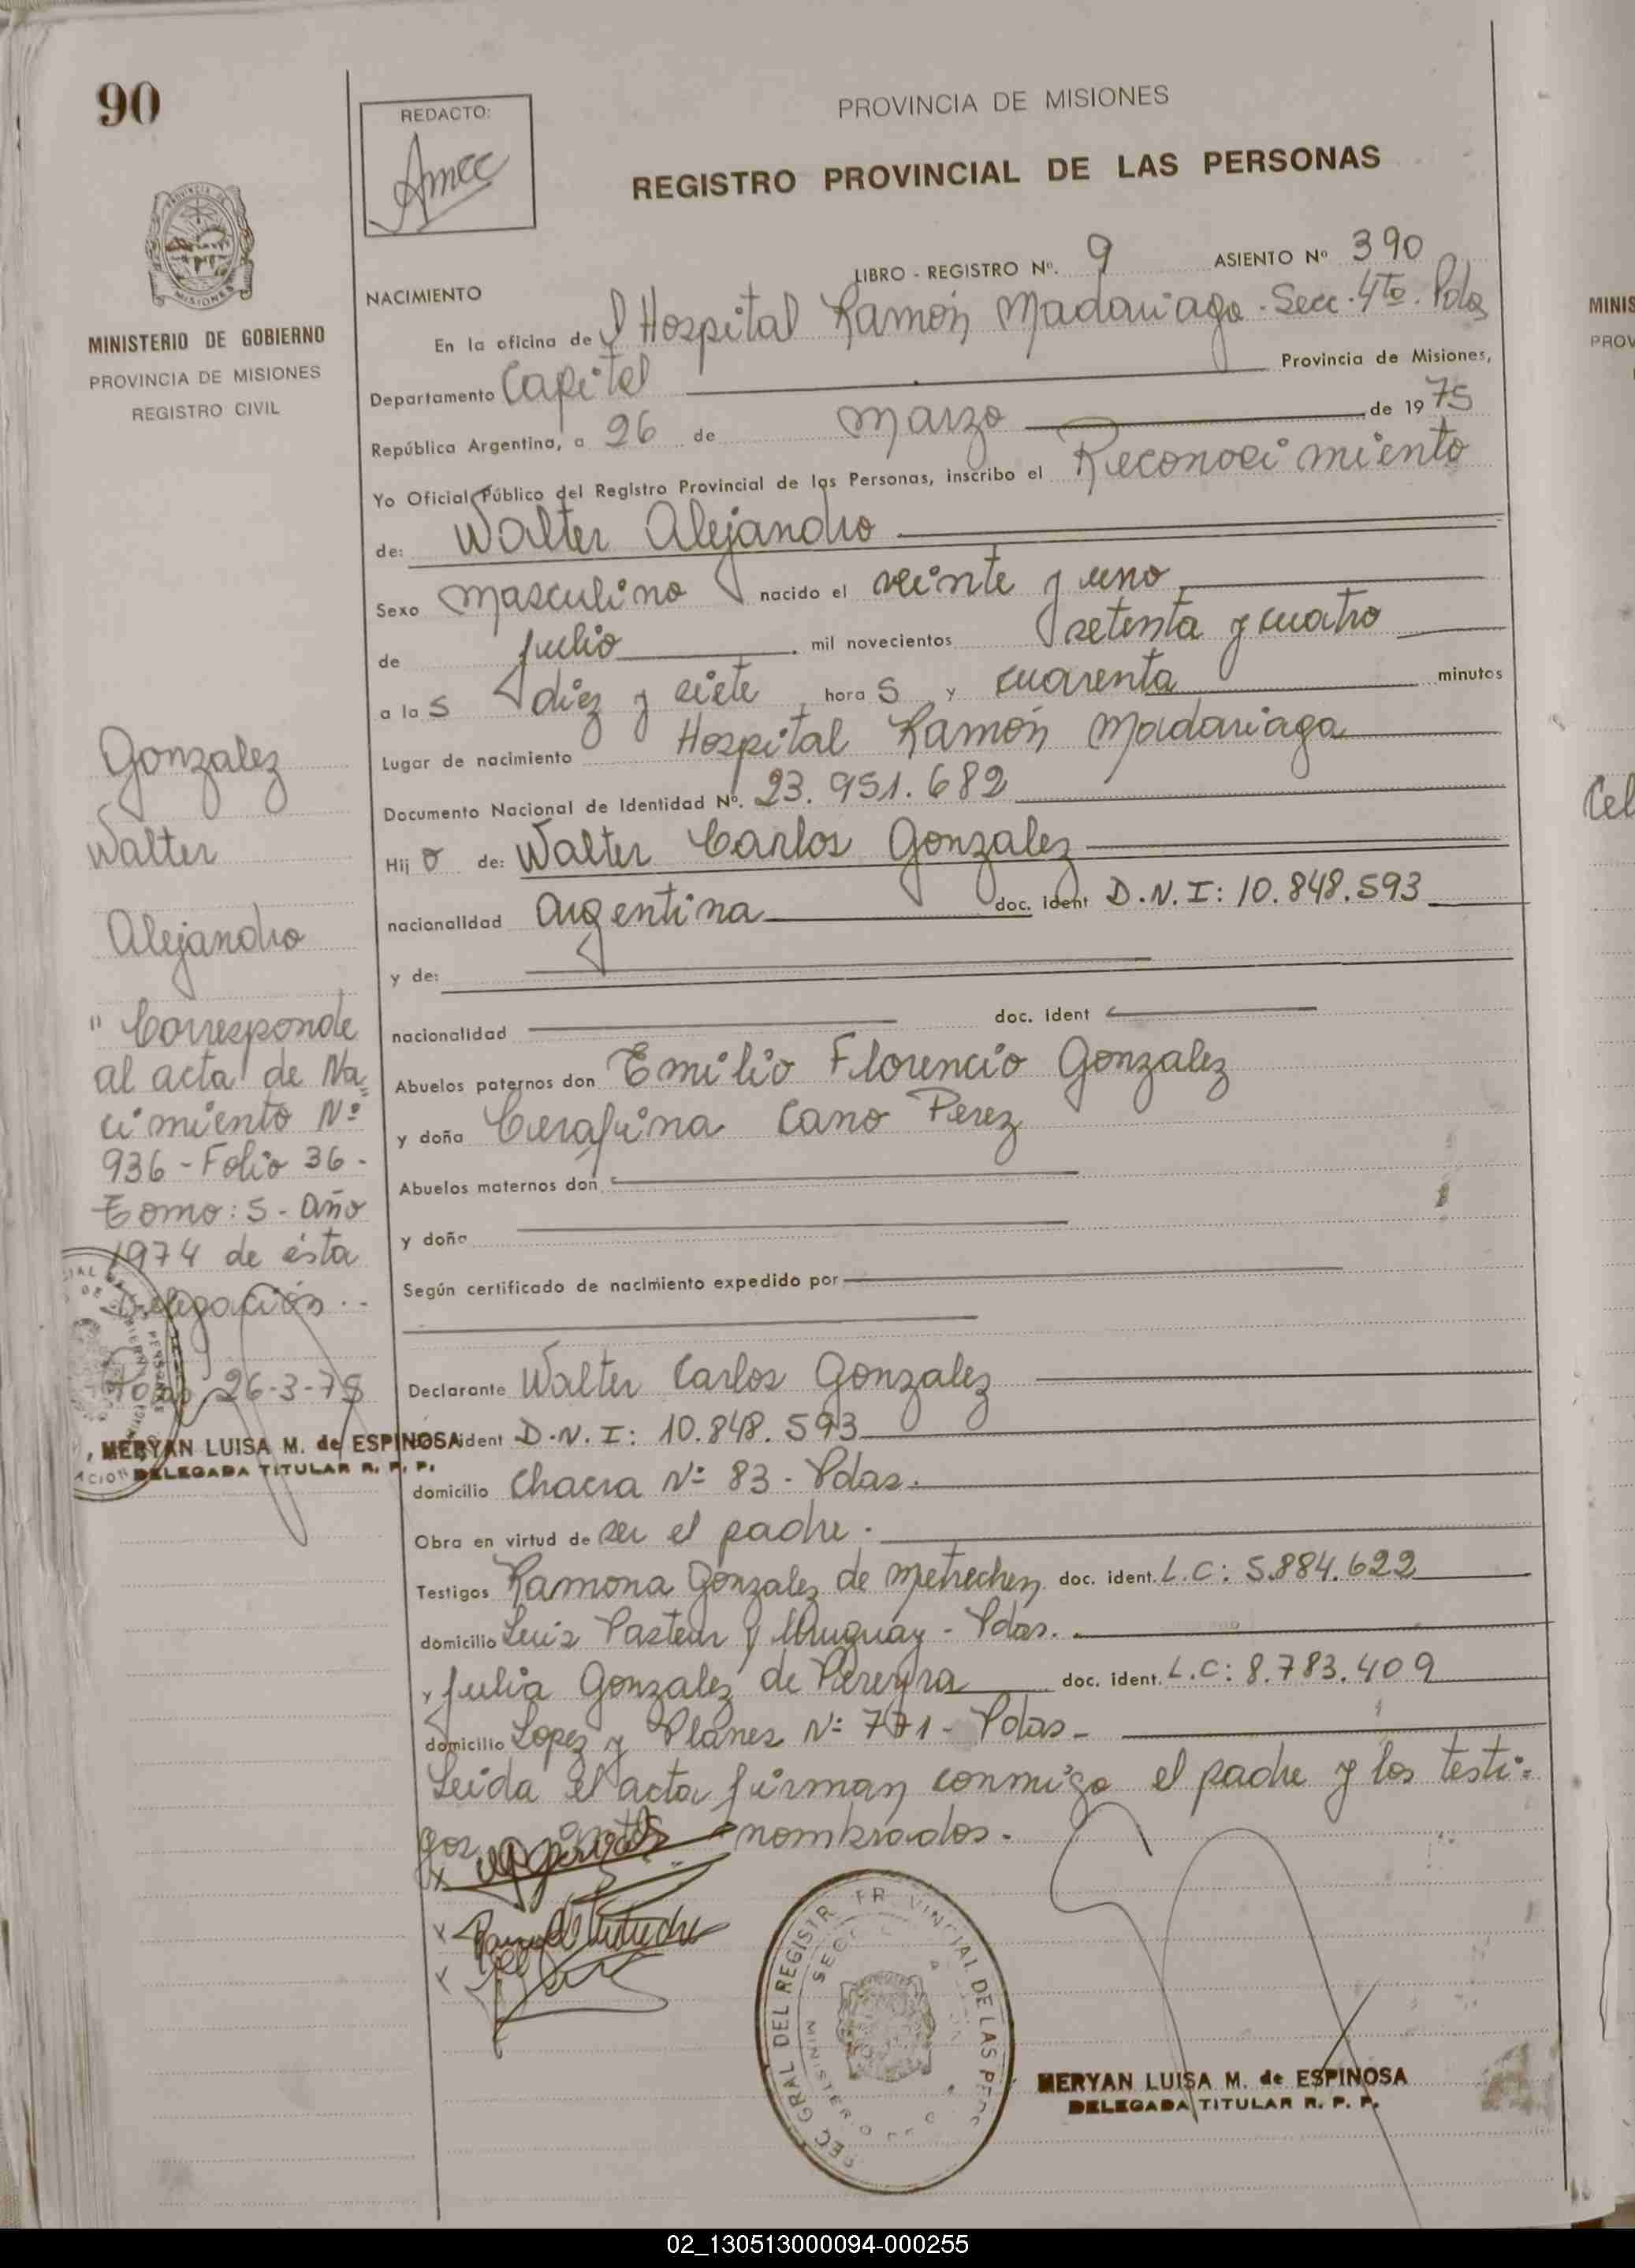 90
REDACTO:
PROVINCIA DE MISIONES
REGISTRO PROVINCIAL DE LAS PERSONAS
MISIONES
MINISTERIO DE GOBIERNO
PROVINCIA DE MISIONES
REGISTRO CIVIL
LIBRO - REGISTRO Nº. 9 ASIENTO Nº 390
NACIMIENTO
En la oficina del Hospital Ramón Madariaga - Secc. 4ta. Pdas
Departamento Capital Provincia de Misiones,
República Argentina, a 26 de marzo de 1975
Yo Oficial Público del Registro Provincial de las Personas, inscribo el Reconocimiento
de: Walter Alejandro
Sexo masculino nacido el veinte y uno
de julio mil novecientos setenta y cuatro
a las diez y siete horas y cuarenta minutos
Lugar de nacimiento Hospital Ramón Madariaga
Documento Nacional de Identidad Nº. 23.951.682
Hijo de: Walter Carlos Gonzalez
nacionalidad Argentina doc. ident D.N.I: 10.848.593
y de:
nacionalidad doc. ident
Abuelos paternos don Emilio Florencio Gonzalez
y doña Cerafina Cano Perez
Abuelos maternos don
y doña
Según certificado de nacimiento expedido por
Declarante Walter Carlos Gonzalez
ident D.N.I: 10.848.593
domicilio Chacra Nº 83 - Pdas.
Obra en virtud de ser el padre.
Testigos Ramona Gonzalez de Metrechen doc. ident. L.C: 5.884.622
domicilio Luis Pasteur y Uruguay - Pdas.
y Julia Gonzalez de Pereyra doc. ident. L.C: 8.783.409
domicilio Lopez y Planes Nº 771 - Pdas -
Leida el acta firman conmigo el padre y los testi=
gos antes nombrados.
Gonzalez
Walter
Alejandro
"Corresponde
al acta de Na=
cimiento Nº
936 - Folio 36 -
Tomo: 5 - Año
1974 de ésta
Delegación..
Pdas, 26-3-75
MERYAN LUISA M. de ESPINOSA
DELEGADA TITULAR R. P. P.
MERYAN LUISA M. de ESPINOSA
DELEGADA TITULAR R. P. P.
MINIS
PROV
Cel
02_130513000094-000255